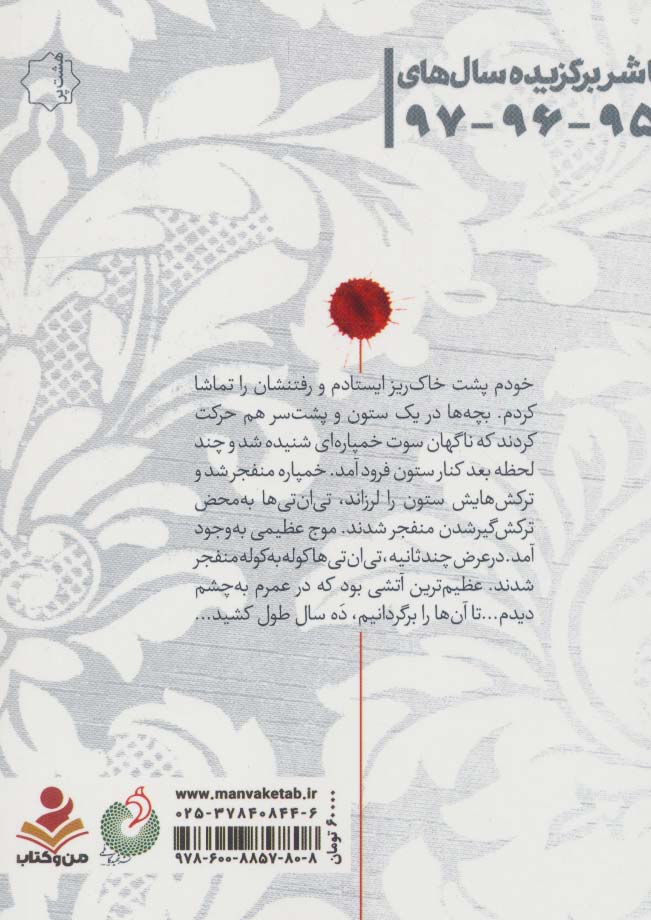 هشت پر
ناشر برگزیده سال‌های
۹۵-۹۶-۹۷
خودم پشت خاک‌ریز ایستادم و رفتنشان را تماشا
کردم. بچه‌ها در یک ستون و پشت‌سر هم حرکت
کردند که ناگهان سوت خمپاره‌ای شنیده شد و چند
لحظه بعد کنار ستون فرود آمد. خمپاره منفجر شد و
ترکش‌هایش ستون را لرزاند، تی‌ان‌تی‌ها به‌محض
ترکش‌گیرشدن منفجر شدند. موج عظیمی به‌وجود
آمد. در عرض چند ثانیه، تی‌ان‌تی‌ها کوله‌به‌کوله منفجر
شدند. عظیم‌ترین آتشی بود که در عمرم به‌چشم
دیدم...تا آن‌ها را برگردانیم، دَه سال طول کشید...
www.manvaketab.ir
۰۲۵-۳۷۸۴۰۸۴۴-۶
۹۷۸-۶۰۰-۸۸۵۷-۸۰-۸
۶۰۰۰۰ تومان
من‌و‌کتاب